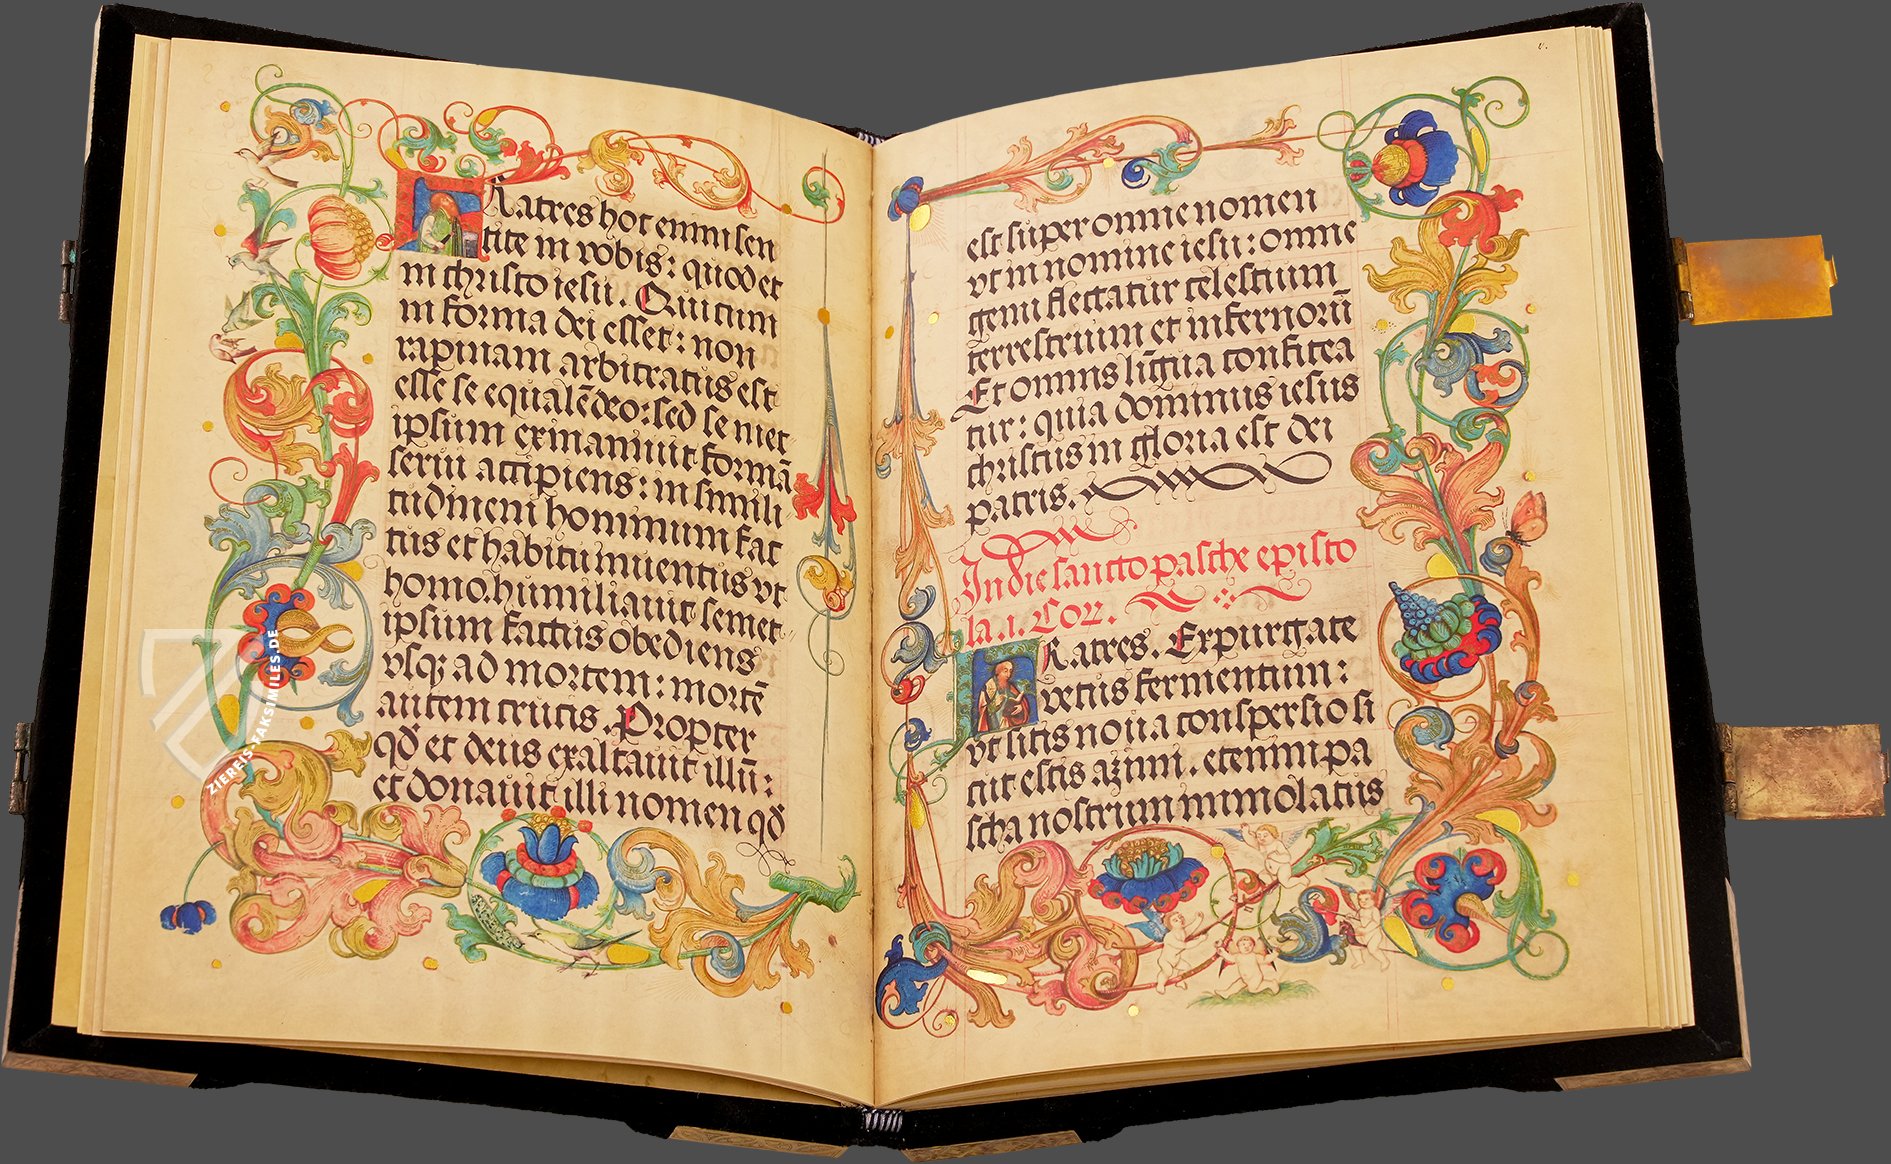 Fratres hoc enim sen
tite in vobis: quod et
in christo iesu. Qui cum
in forma dei esset: non
rapinam arbitratus est
esse se equalē deo: sed se met
ipsum exinanivit formā
servi accipiens: in simili
tudinem hominum fac
tus et habitu inventus vt
homo. humiliavit semet
ipsum factus obediens
vsqꝫ ad mortem: mortē
autem crucis. Propter
qd̄ et deus exaltavit illū:
et donavit illi nomen qd̄
v.
est super omne nomen
vt in nomine iesu: omne
genu flectatur celestium
terrestrium et infernorū
Et omnis līgua confitea
tur: quia dominus iesus
christus in gloria est dei
patris.
In die sancto pasche episto
la .i. Corr.
Fratres. Expurgate
vetus fermentum:
vt sitis nova conspersio si
cut estis azimi. etenim pa
scha nostrum immolatus
ZIEREIS-FAKSIMILES.DE